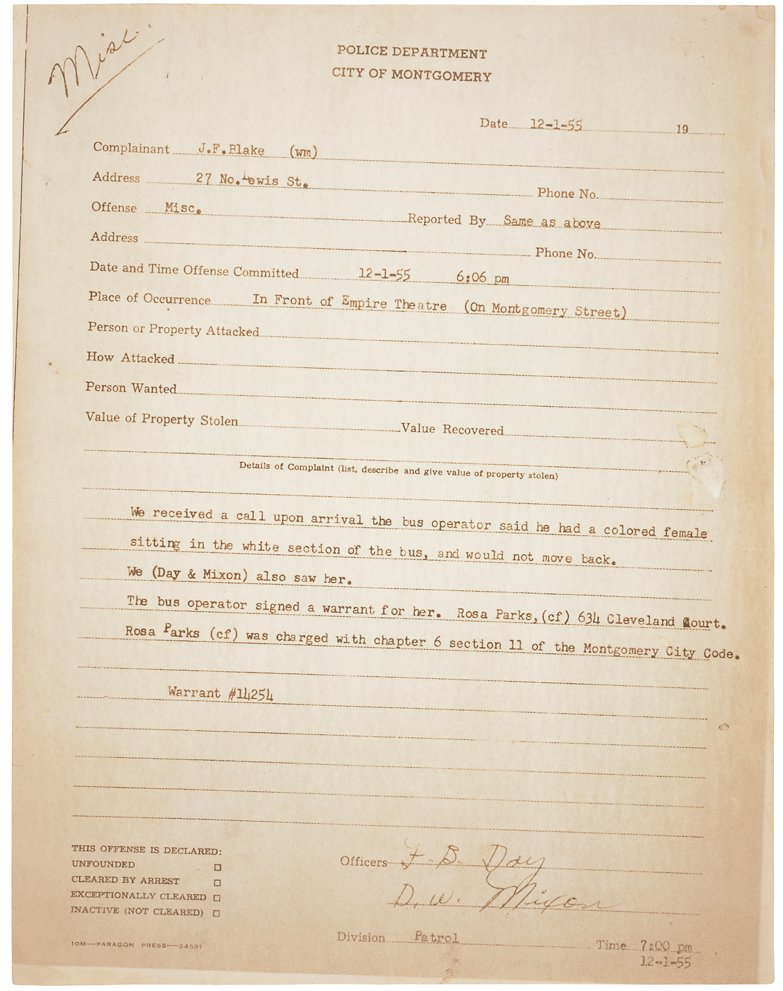 Misc.
POLICE DEPARTMENT
CITY OF MONTGOMERY
Date 12-1-55 19
Complainant J.F.Blake (wm)
Address 27 No. Lewis St. Phone No.
Offense Misc. Reported By Same as above
Address Phone No.
Date and Time Offense Committed 12-1-55 6:06 pm
Place of Occurrence In Front of Empire Theatre (On Montgomery Street)
Person or Property Attacked
How Attacked
Person Wanted
Value of Property Stolen Value Recovered
Details of Complaint (list, describe and give value of property stolen)
We received a call upon arrival the bus operator said he had a colored female
sitting in the white section of the bus, and would not move back.
We (Day & Mixon) also saw her.
The bus operator signed a warrant for her. Rosa Parks, (cf) 634 Cleveland Court.
Rosa Parks (cf) was charged with chapter 6 section 11 of the Montgomery City Code.
Warrant #14254
THIS OFFENSE IS DECLARED:
UNFOUNDED ☐
CLEARED BY ARREST ☐
EXCEPTIONALLY CLEARED ☐
INACTIVE (NOT CLEARED) ☐
Officers F. B. Day
D. W. Mixon
Division Patrol Time 7:00 pm
12-1-55
10M—PARAGON PRESS—24591